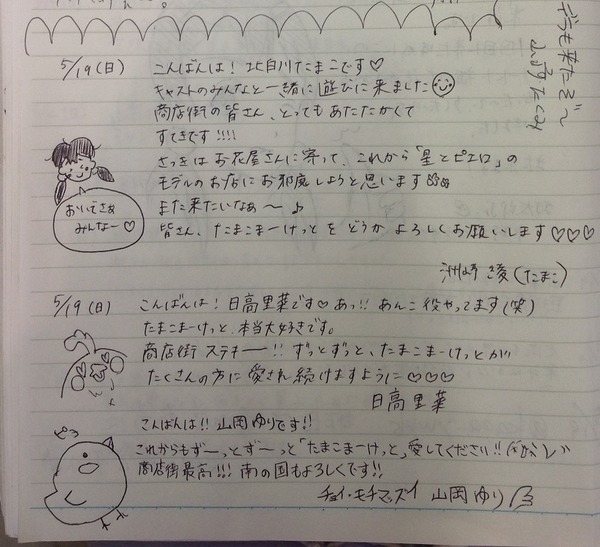 デラも来たぞ〜
5/19(日) こんばんは! 北白川たまこです♡
キャストのみんなと一緒に遊びに来ました
商店街の皆さん、とってもあたたかくて
すてきです!!!!
さっきはお花屋さんに寄って、これから「星とピエロ」の
モデルのお店にお邪魔しようと思います
また来たいなぁ〜♪
皆さん、たまこまーけっとをどうかよろしくお願いします♡♡♡
おいでませ
みんなー♡
洲崎 綾(たまこ)
5/19(日) こんばんは! 日高里菜です♡あっ!! あんこ役やってます(笑)
たまこまーけっと、本当大好きです。
商店街 ステキー!! ずっとずっと、たまこまーけっとが
たくさんの方に愛され続けますように♡♡♡
日高里菜
こんばんは!! 山岡ゆりです!!
ピッ
これからもず〜っとず〜っと「たまこまーけっと」愛してください!!
商店街最高!!! 南の国もよろしくです!!
チョイ・モチマッズイ 山岡ゆり